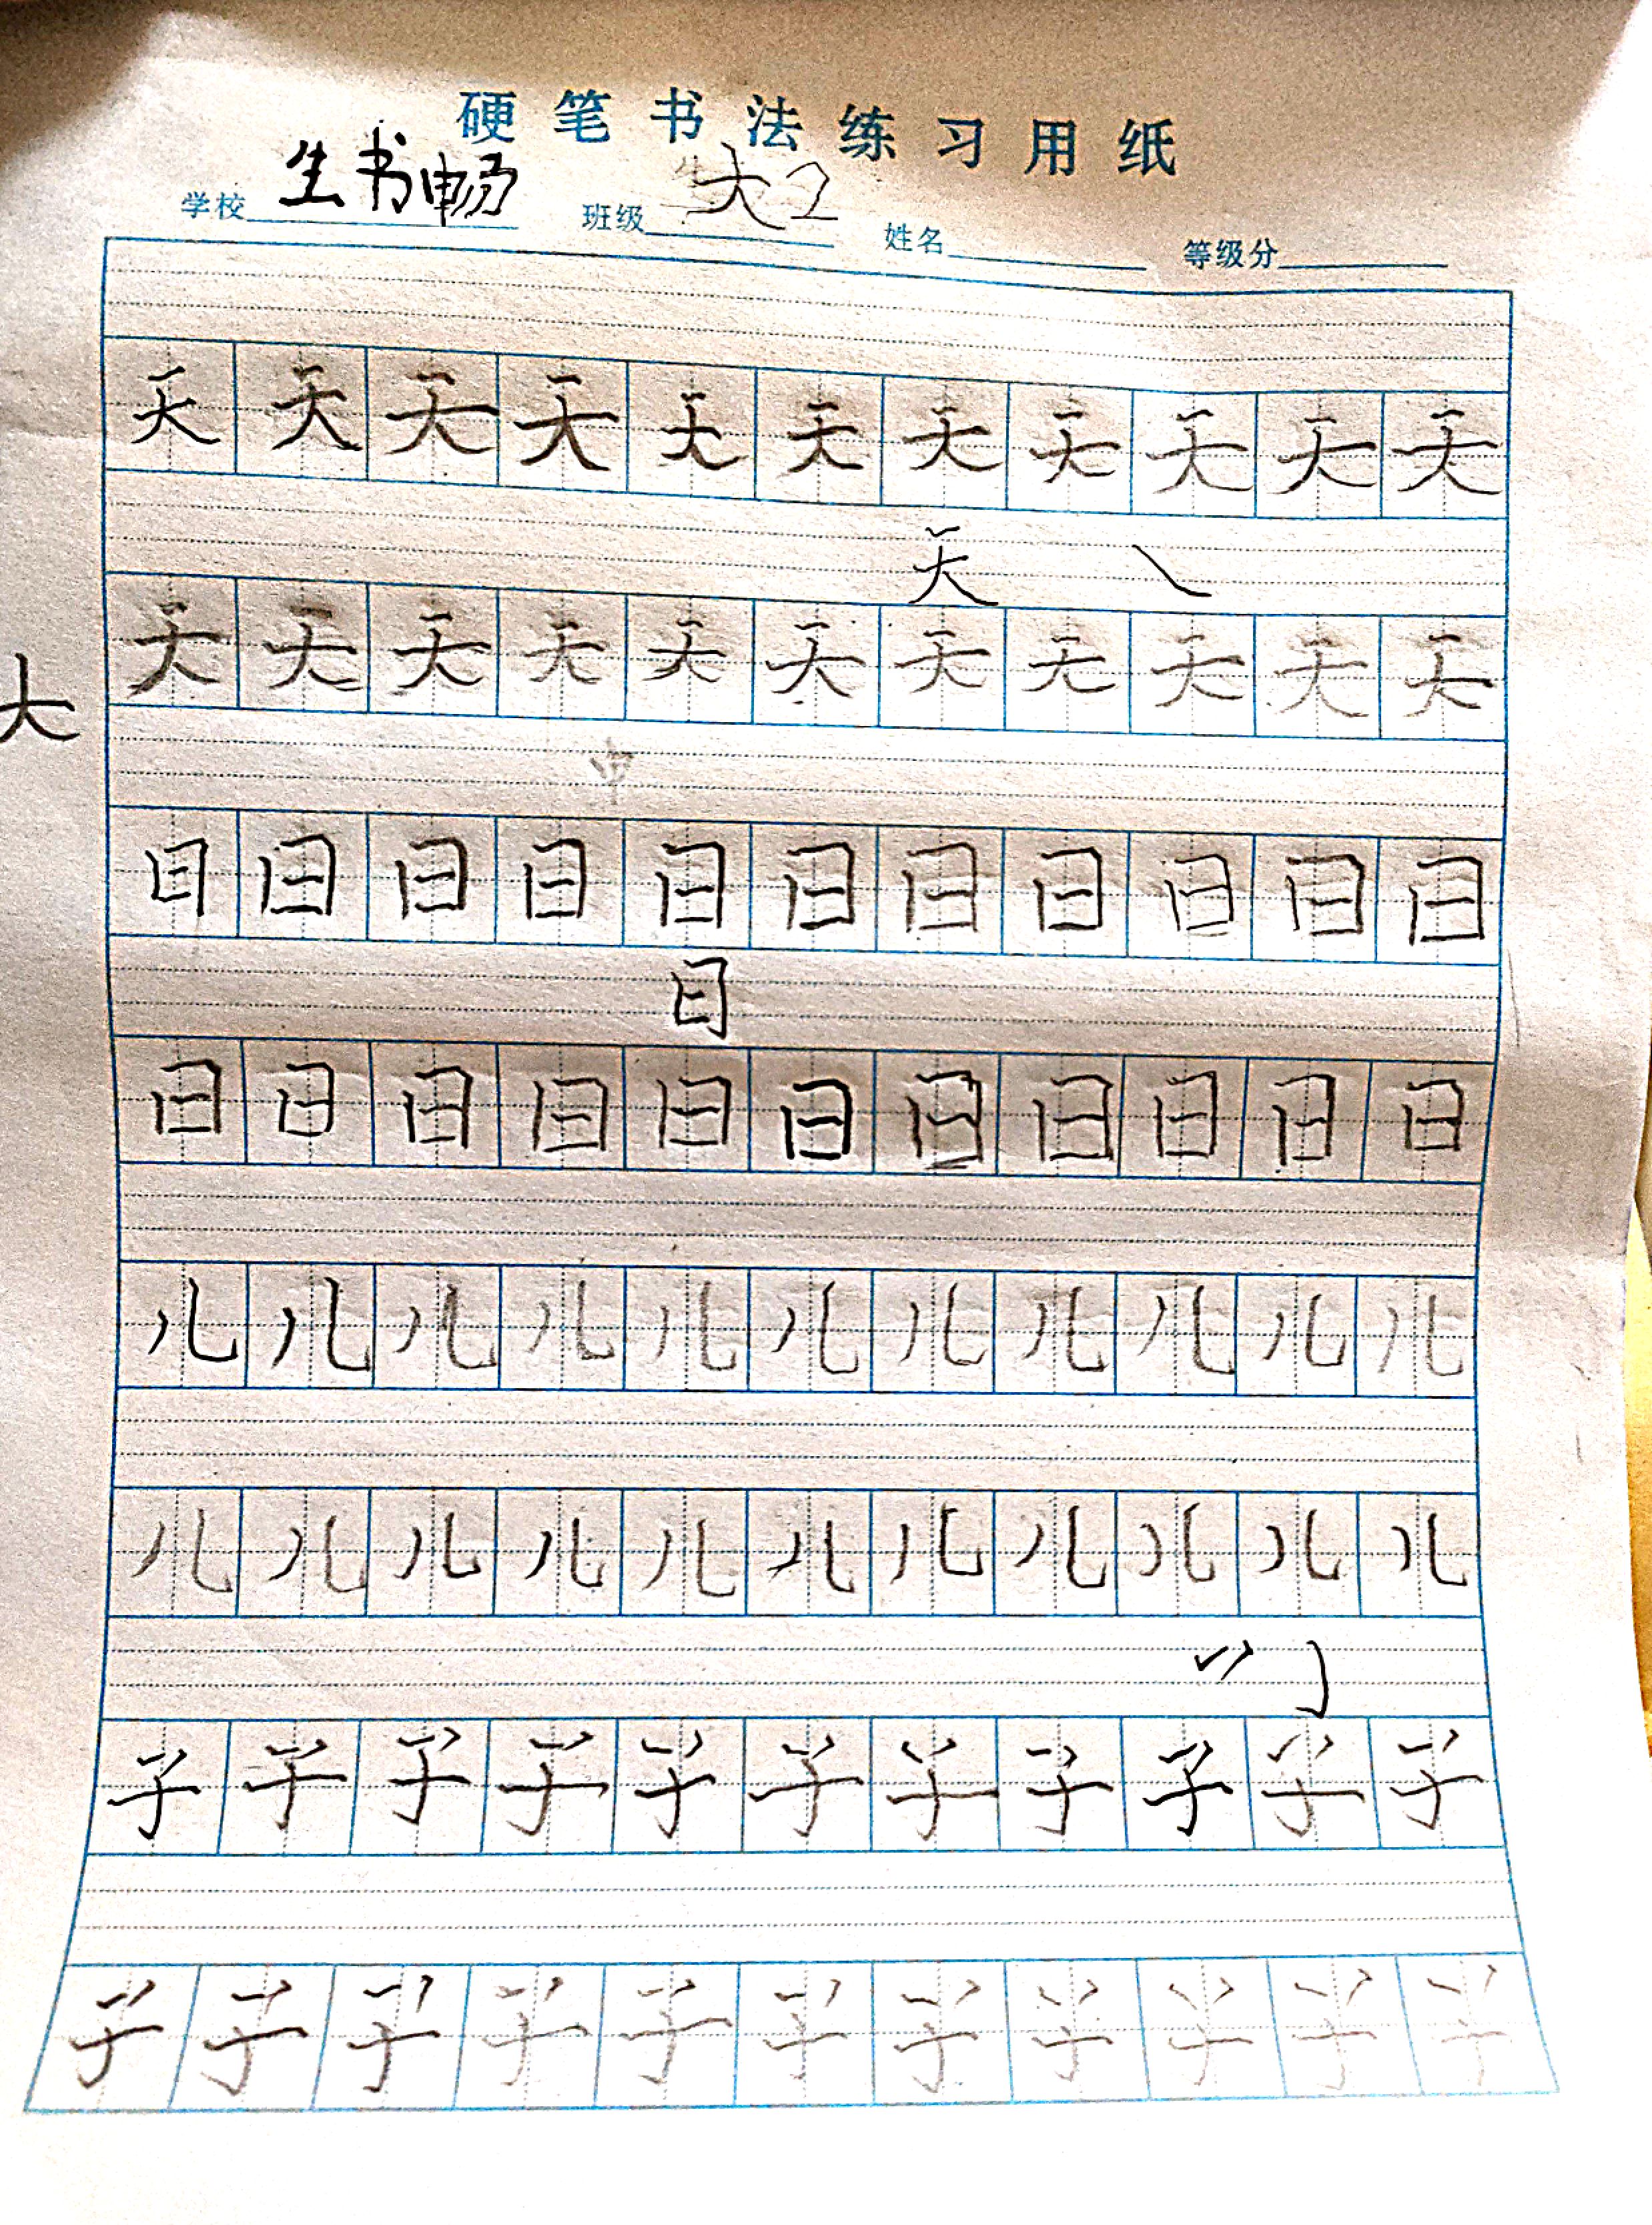 硬笔书法练习用纸
学校 生书畅 班级 大2 姓名 等级分
天 天 天 天 天 天 天 天 天 天 天
天
天 天 天 天 天 天 天 天 天 天 天
大
日 日 日 日 日 日 日 日 日 日 日
日
日 日 日 日 日 日 日 日 日 日 日
儿 儿 儿 儿 儿 儿 儿 儿 儿 儿 儿
儿 儿 儿 儿 儿 儿 儿 儿 儿 儿 儿
子 子 子 子 子 子 子 子 子 子 子
子 子 子 子 子 子 子 子 子 子 子